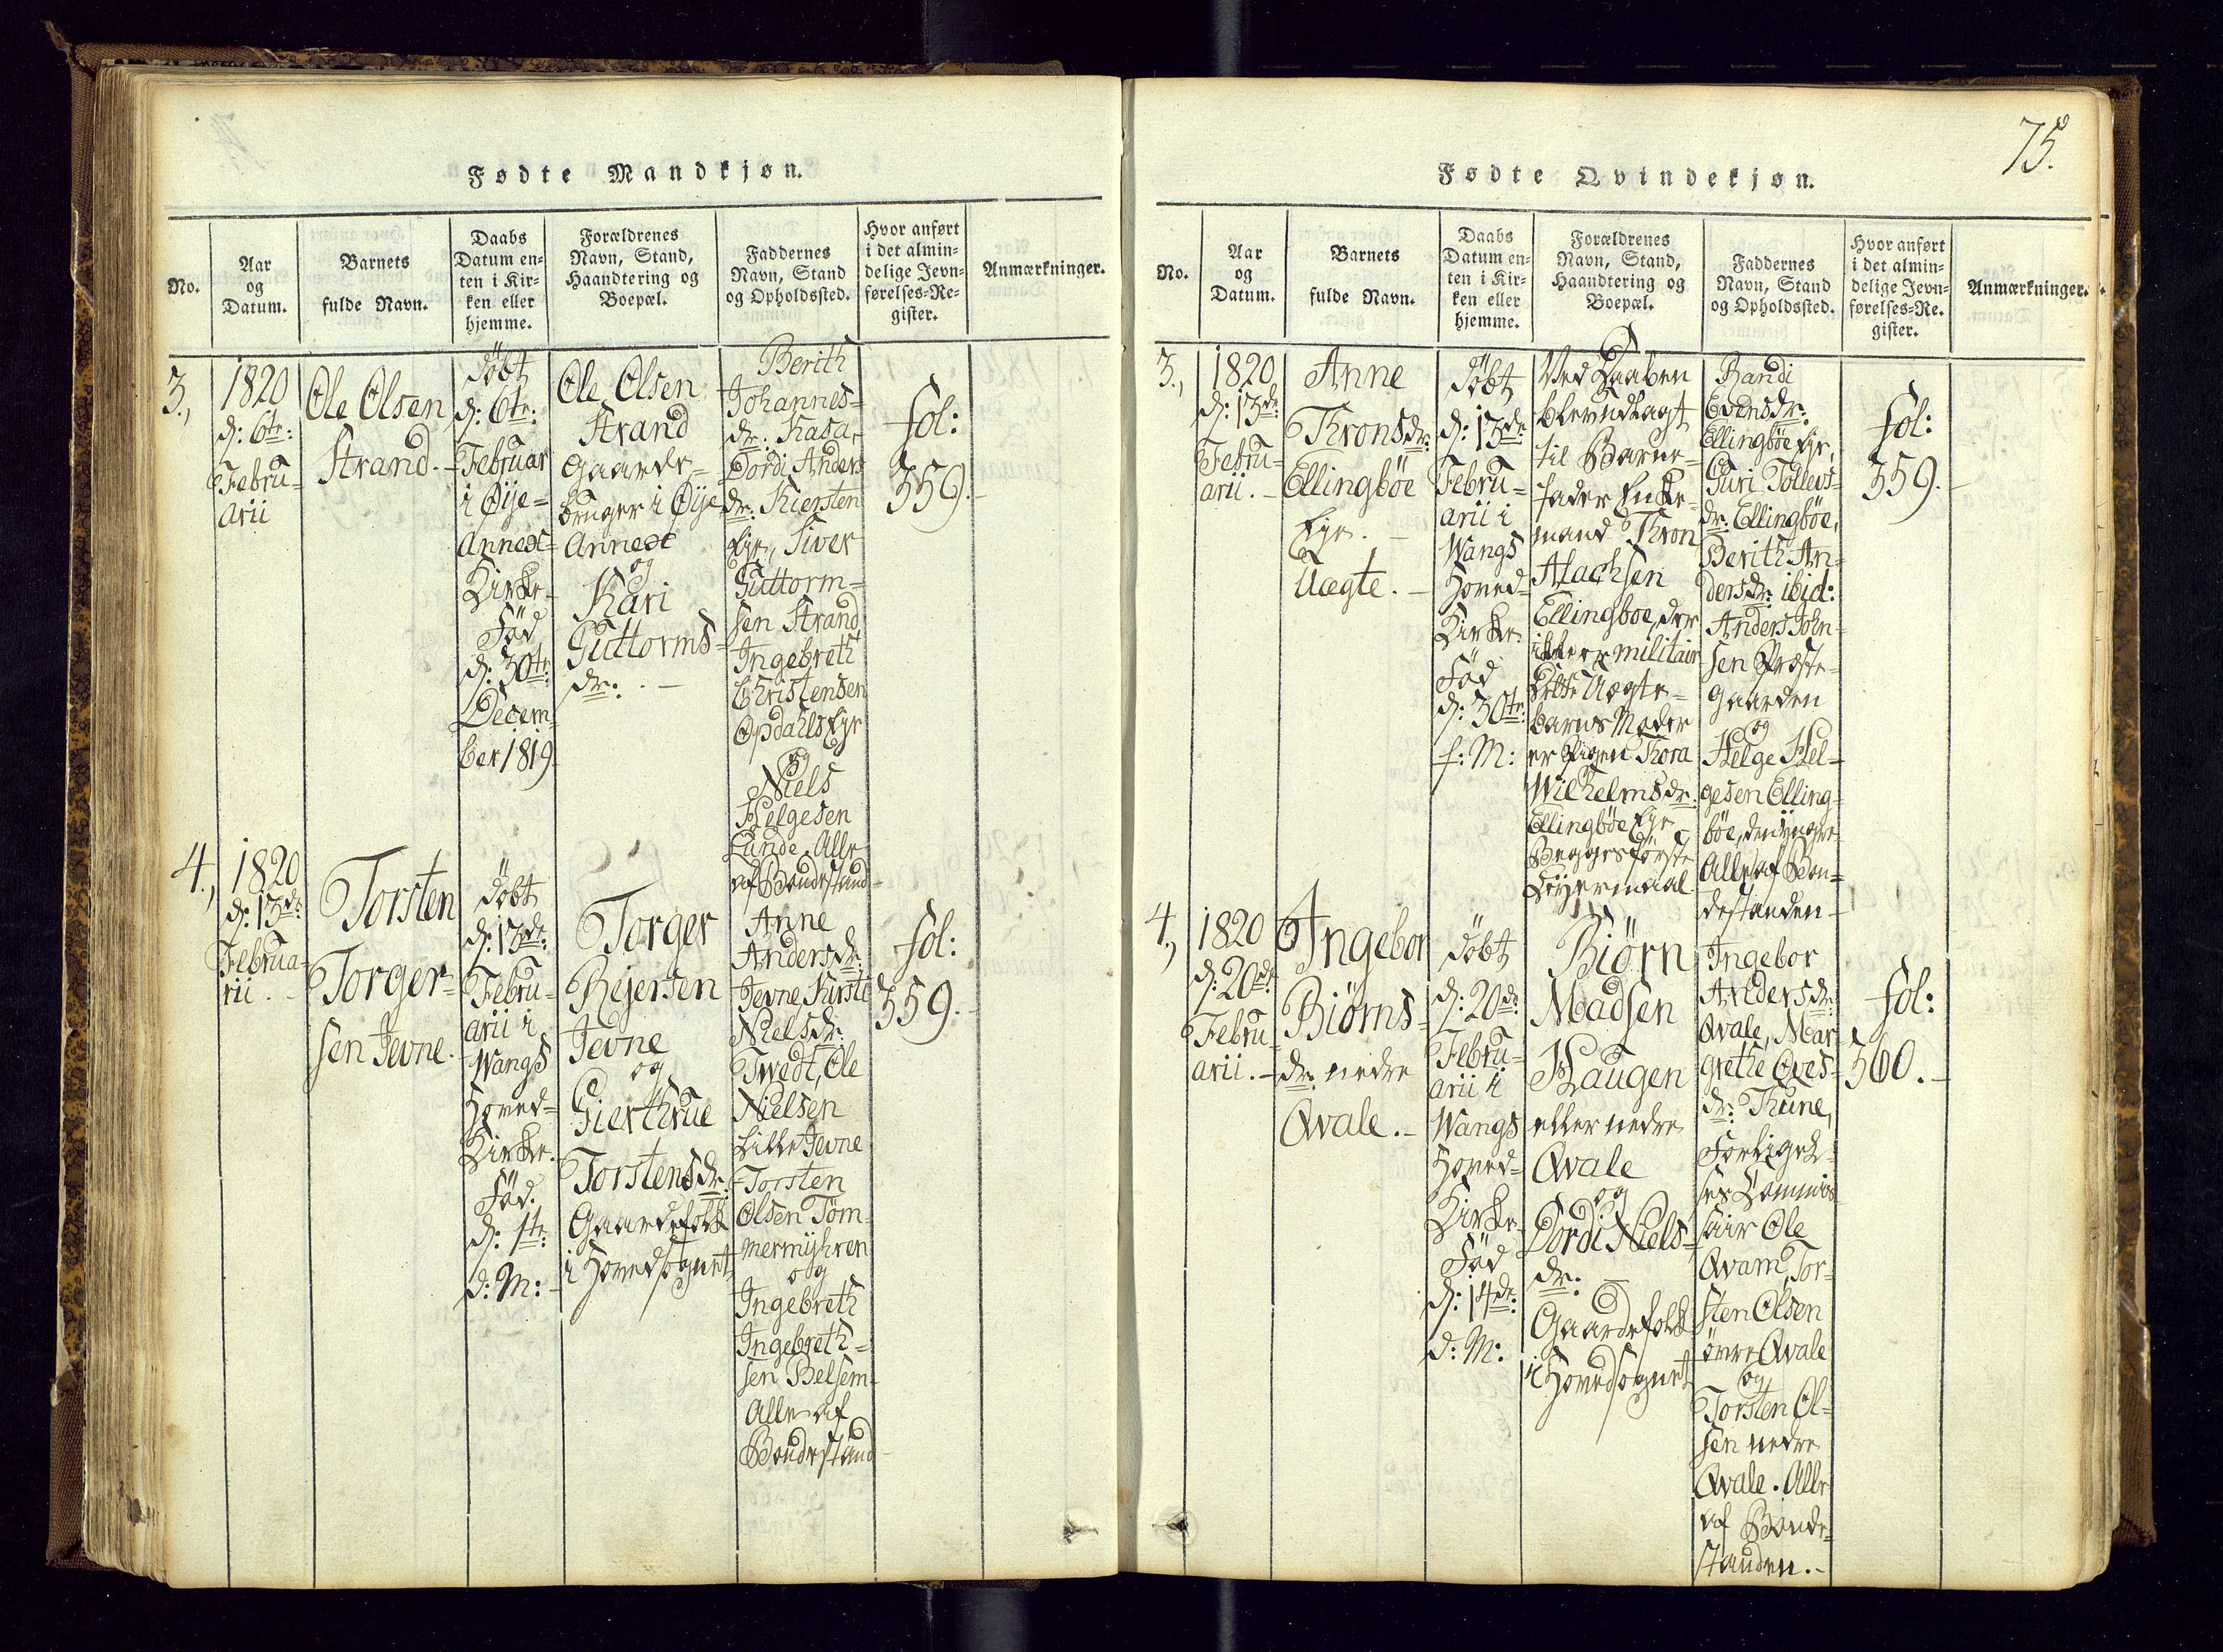 Fødte Mandkjøn.
No.
Aar
og
Datum.
Barnets
fulde Navn.
Daabs
Datum en-
ten i Kir-
ken eller
hjemme.
Forældrenes
Navn, Stand,
Haandtering og
Boepæl.
Faddernes
Navn, Stand
og Opholdssted.
Hvor anført
i det almin-
delige Jevn-
førelses-Re-
gister.
Anmærkninger.
3.,
1820
d: 6te:
Febru-
arii
Ole Olsen
Strand.-
Döbt
d: 6te:
Februar
i Øÿe-
Annex-
Kirke-
Fød
d: 30te:
Decem-
ber 1819.
Ole Olsen
Strand
Gaardr-
bruger i Øÿe
Annex
og
Kari
Guttorms-
dr: . -
Berith
Johannes-
dr: Kasa,
Dordi Anders
dr: Kiersten
Eje, Siver
Guttorm-
sen Strand
Ingebreth
Christensen
Opdahls Eje
og
Niels
Helgesen
Lunde. Alle
af Bondestand-
fol:
359.-
4.,
1820
d: 13de:
Februa-
rii. -
Torsten
Torger-
sen Jevne.
Döbt
d: 13de:
Febru-
arii i
Wangs
Hoved-
Kirke.
Fød.
d: 1te:
d: M: -
Torger
Rejersen
Jevne
og
Gierthrue
Torstensdr:
Gaardefolk
i Hovedsognet
Anne
Andersdr:
Jevne, Kirsti
Nielsdr:
Twedt, Ole
Nielsen
Lille Jevne
Torsten
Olsen Töm-
mermÿhren
og
Ingebreth
Ingebreth-
sen Belsem-
Alle af
Bondestand-
fol:
359.-
75.
Fødte Qvindekjøn.
No.
Aar
og
Datum.
Barnets
fulde Navn.
Daabs
Datum en-
ten i Kir-
ken eller
hjemme.
Forældrenes
Navn, Stand,
Haandtering og
Boepæl.
Faddernes
Navn, Stand
og Opholdssted.
Hvor anført
i det almin-
delige Jevn-
førelses-Re-
gister.
Anmærkninger.
3.,
1820
d: 13de:
Febru-
arii. -
Anne
Thronsdr:
Ellingböe
Eje. -
Uægte. -
Döbt
d: 13de:
Febru-
arii i
Wangs
Hoved-
Kirke.
Fød
d: 30te:
f: M:
Ved Daaben
blev udlagt
til Barne-
fader Enke-
mand Thron
Alachsen
Ellingboe, der
ikke er militair
Dette Uægte-
barns Moder
er Pigen Thora
Wilhelmsdr:
Ellingböe Eje
Begges første
Leÿermaal.
Randi
Evensdr:
Ellingböe Eje,
Guri Tollevs-
dr: Ellingböe,
Berith An-
dersdr: ibid:
Anders John-
sen Præste-
gaarden
og
Helge Hel-
gesen Elling-
böe, den yngre
Alle af Bon-
destanden-
fol:
359.-
4.,
1820
d: 20de:
Febru-
arii. -
Ingebor
Biörns-
dr: nedre
Qvale. -
Döbt
d: 20de:
Febru-
arii i
Wangs
Hoved-
Kirke-
Fød
d: 14de:
d: M:
Biörn
Madsen
Haugen
eller nedre
Qvale
og
Dordi Niels-
dr: -
Gaardefolk
i Hovedsognet
Ingebor
Andersdr:
Qvale, Mar-
grethe Oves-
dr: Thune,
Forligel-
ses Commis-
sair Ole
Qvam, Tor-
sten Olsen
övre Qvale
og
Torsten Ol-
sen nedre
Qvale. Alle
af Bonde-
standen. -
fol:
360. -